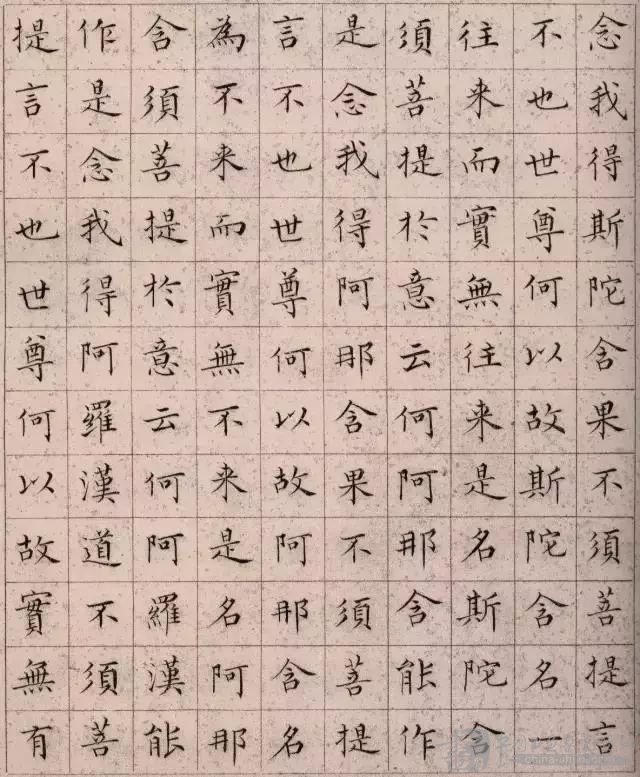 念我得斯陀含果不須菩提言
不也世尊何以故斯陀含名一
往来而實無往来是名斯陀含
須菩提於意云何阿那含能作
是念我得阿那含果不須菩提
言不也世尊何以故阿那含名
為不来而實無不来是名阿那
含須菩提於意云何阿羅漢能
作是念我得阿羅漢道不須菩
提言不也世尊何以故實無有